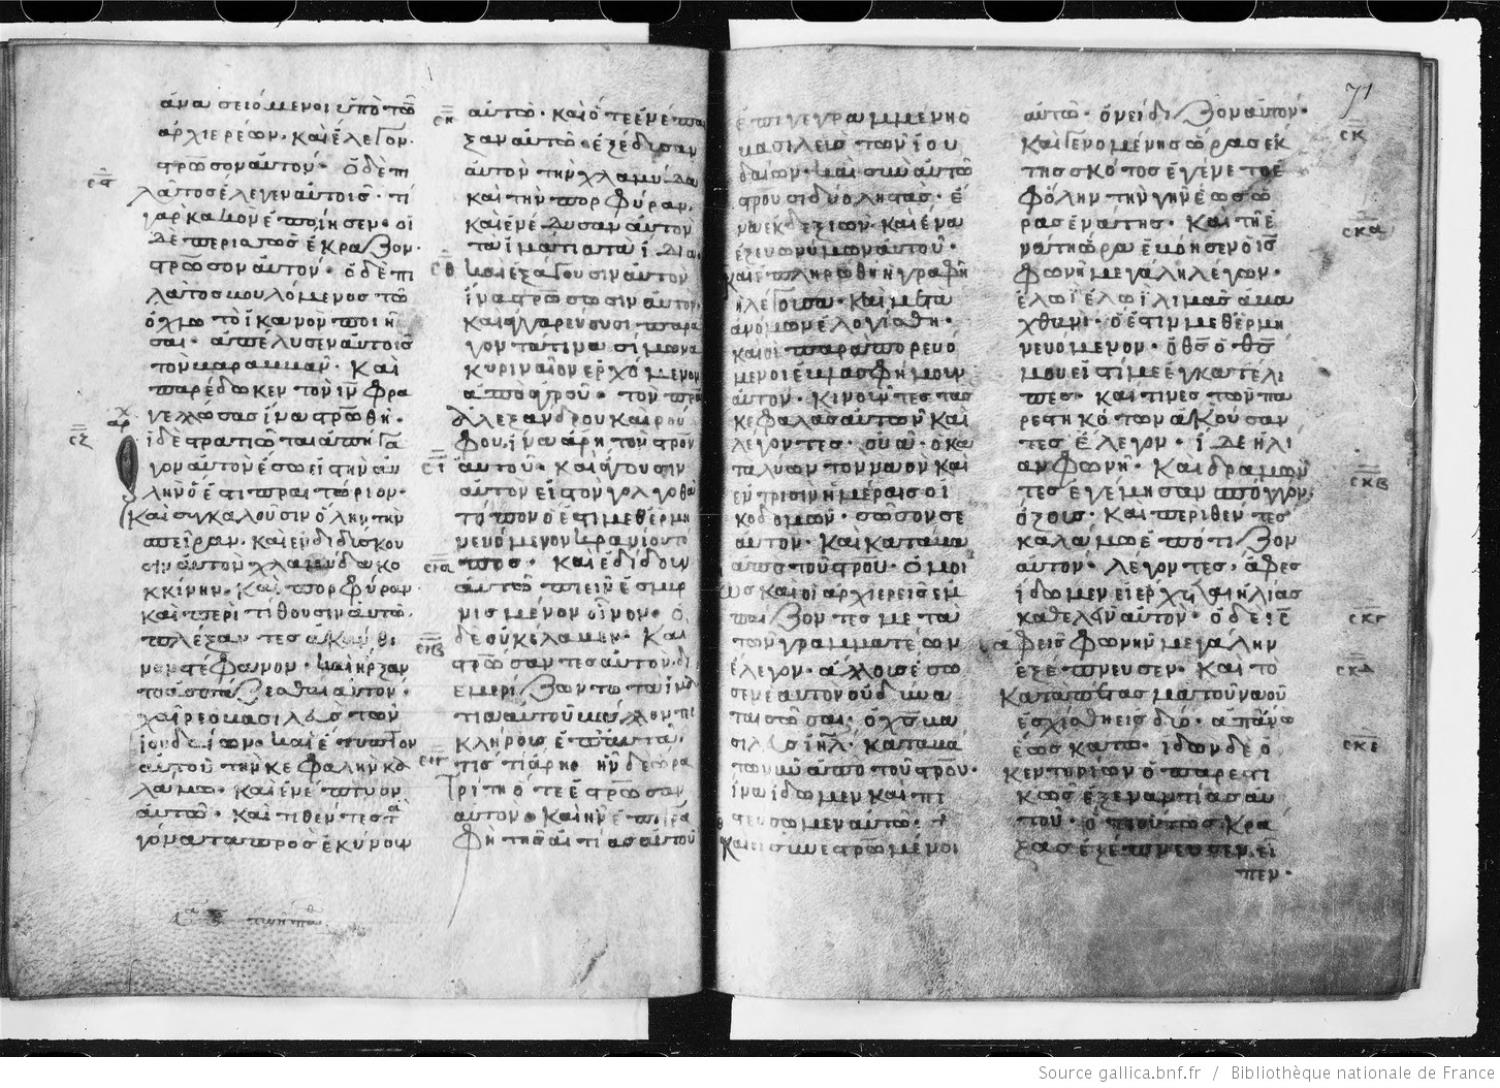 ἀνασειόμενοι ὑπὸ τῶ
ἀρχιερέων· καὶ ἔλεγον·
στρωσον αὐτον· ὁ δὲ πι
λᾶτος ἔλεγεν αὐτοῖς· τί
γὰρ κακὸν ἐποίησεν· οἱ
δὲ περισσῶς ἔκραζον·
στρωσον αὐτόν· ὁ δὲ πι
λᾶτος βουλόμενος τῶ
ὄχλω τὸ ἱκανὸν ποιῆ
σαι· ἀπέλυσεν αὐτοῖς
τὸν βαραββᾶν· καὶ
παρέδωκεν τὸν ιν φρα
γελλώσας ἵνα στρωθῆ·
ἱ δὲ στρατιῶται ἀπήγα
γον αὐτὸν ἔσω εἰς τὴν αὐ
λὴν ὅ ἐστι πραιτώριον·
καὶ συγκαλοῦσιν ὅλην τὴν
σπεῖραν· καὶ ἐνδιδύσκου
σιν αὐτὸν χλαμύδα κο
κκίνην· καὶ πορφύραν·
καὶ περιτιθουσιν αὐτῶ·
πλέξαντες ἀκάνθι
νον στέφανον· καὶ ἤρξαν
το ἀσπάζεσθαι αὐτόν·
χαῖρε ὁ βασιλεὺς τῶν
ἰουδαίων· καὶ ἔτυπτον
αὐτοῦ τὴν κεφαλὴν κα
λάμω· καὶ ἐνέπτυον
αὐτῶ· καὶ τιθέντες τὰ
γόνατα προσεκύνουν
αὐτῶ· καὶ ὅτε ἐνέπαι
ξαν αὐτῶ· ἐξέδυσαν
αὐτὸν τὴν χλαμύδα
καὶ τὴν πορφύραν·
καὶ ἐνέδυσαν αὐτὸν
τὰ ἱμάτια τὰ ἴδια·
καὶ ἐξάγουσιν αὐτὸν
ἵνα στρωσωσιν αὐτόν·
καὶ ἀγγαρεύουσι παρά
γοντά τινα σίμωνα
κυριναῖον ἐρχόμενον
ἀπὸ ἀγροῦ· τὸν πρα
ἀλεξάνδρου καὶ ρού
φου· ἵνα ἄρη τὸν στρον
αὐτοῦ· καὶ ἄγουσιν
αὐτὸν εἰς τὸν γολγοθὰ
τόπον ὅ ἐστι μεθερμη
νευόμενον κρανίου τό
πος· καὶ ἐδίδουν
αὐτῶ πιεῖν ἐσμυρ
νισμένον οἶνον· ὁ
δὲ οὐκ ἔλαβεν· καὶ
στρωσαντες αὐτὸν δι
εμερίζοντο τὰ ἱμά
τια αὐτοῦ βάλλοντες
κλῆρον ἐπ' αὐτά·
τίς τί ἄρη· ἦν δὲ ὥρα
τρίτη ὅτε ἐστρωσαν
αὐτον· καὶ ἦν ἐπιγρα
φὴ τῆς αἰτίας αὐτοῦ
71
ἐπιγεγραμμένη ὁ
βασιλεὺς τῶν ἰου
δαίων· καὶ σὺν αὐτῶ
στρουσι δύο ληστάς· ἕ
να ἐκ δεξιῶν καὶ ἕνα
ἐξ εὐωνύμων αὐτοῦ·
καὶ ἐπληρώθη ἡ γραφὴ
ἡ λέγουσα· καὶ μετὰ
ἀνόμων ἐλογίσθη·
καὶ οἱ παραπορευό
μενοι ἐβλασφήμουν
αὐτον· κινοῦντες τὰς
κεφαλὰς αὐτῶν καὶ
λέγοντες· οὐά· ὁ κα
ταλύων τὸν ναὸν καὶ
ἐν τρισὶν ἡμέραις οἰ
κοδομῶν· σῶσον σε
αὐτον· καὶ κατάβα
ἀπὸ τοῦ στρου· ὁμοί
ως καὶ οἱ ἀρχιερεῖς ἐμ
παίζοντες μετὰ
τῶν γραμματέων
ἔλεγον· ἄλλους ἔσω
σεν ἑαυτὸν οὐ δύνα
ται σῶσαι· ὁ χς βα
σιλεὺς ιηλ· καταβά
τω νῦν ἀπὸ τοῦ στρου·
ἵνα ἴδωμεν καὶ πι
στεύσωμεν αὐτῶ·
καὶ οἱ συνεστρωμένοι
αὐτῶ· ὠνείδιζον αὐτόν·
καὶ γενομένης ὥρας ἕκ
της σκότος ἐγένετο ἐ
φ' ὅλην τὴν γῆν ἕως ὥ
ρας ἐνάτης· καὶ τῆ ἐ
νάτη ὥρα ἐβόησεν ὁ ις
φωνῆ μεγάλη λέγων·
ἐλωῒ ἐλωῒ λιμᾶς ἀβα
χθανι· ὅ ἐστιν μεθερμη
νευόμενον· ὁ θς ὁ θς
μου εἰς τί με ἐγκατέλι
πες· καί τινες τῶν πα
ρεστηκότων ἀκούσαν
τες ἔλεγον· ἴδε ἠλί
αν φωνῆ· καὶ δραμῶν
τες ἐγέμησαν σπόγγον
ὄξους· καὶ περιθέντες
καλάμω ἐπότιζον
αὐτόν· λέγοντες· ἄφες
ἴδωμεν εἰ ἔρχεται ἠλίας
καθελεῖν αὐτόν· ὁ δὲ ις
ἀφεὶς φωνὴν μεγάλην
ἐξέπνευσεν· καὶ τὸ
καταπέτασμα τοῦ ναοῦ
ἐσχίσθη εἰς δύο· ἀπ' ἄνω
ἕως κάτω· ἰδὼν δὲ ὁ
κεντυρίων ὁ παρεστη
κὼς ἐξ ἐναντίας αὐ
τοῦ· ὅτι οὕτως κρά
ξας ἐξέπνευσεν, εἶ
πεν·
Source gallica.bnf.fr / Bibliothèque nationale de France